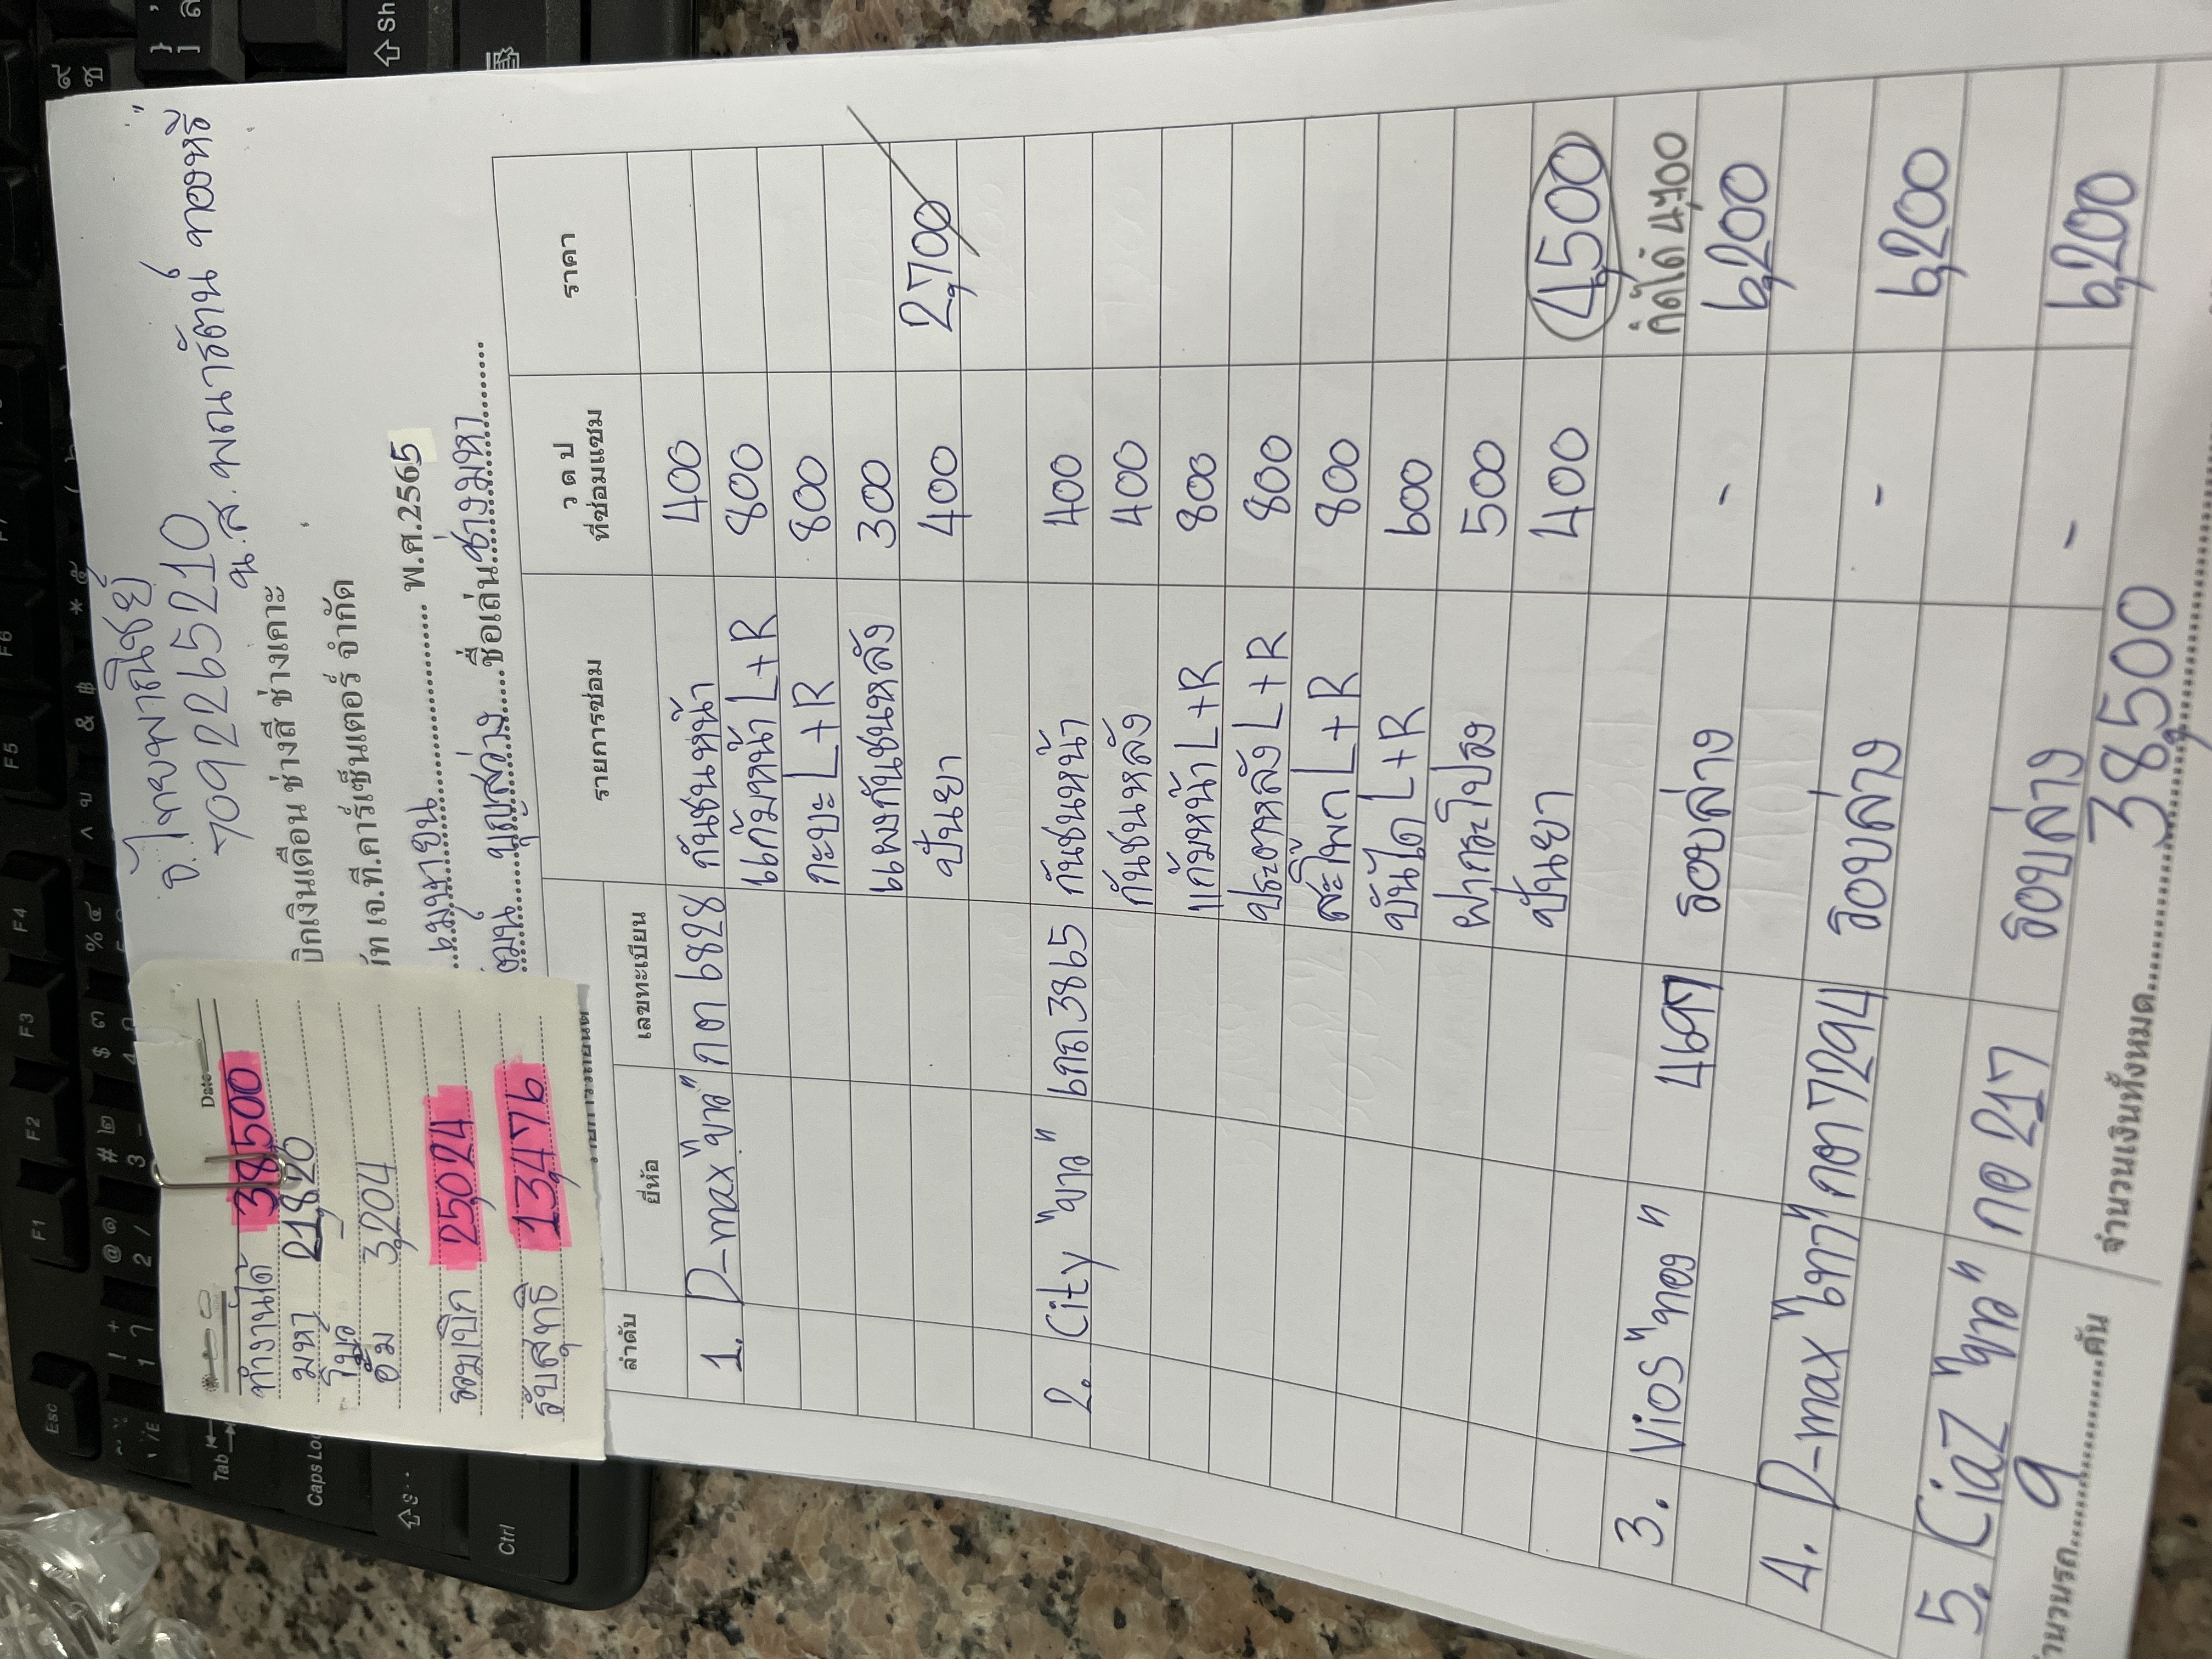 จ. ไทยพาณิชย์
7092265210
น.ส. พณารัตน์ ทองหรี่
บิกเงินเดือน ช่างสี ช่างเคาะ
ษัท เจ.ที.คาร์เซ็นเตอร์ จำกัด
เมษายน พ.ศ.2565
บุญสว่าง ชื่อเล่น ช่างมหา
Date
ทำงานได้ 38,500
มหา 21,820
โบว์ -
อั๋ม 3,204
รวมเบิก 25,024
รับสุทธิ 13,476
ลำดับ ยี่ห้อ เลขทะเบียน รายการซ่อม ว ด ป ที่ซ่อมแซม ราคา
1. D-max "ขาว" กต 6828 กันชนหน้า 400
แก้มหน้า L+R 800
กะบะ L+R 800
แผงกันชนหลัง 300
ปั่นยา 400 2,700
2. City "ขาว" 6กถ 3865 กันชนหน้า 400
กันชนหลัง 400
แก้มหน้า L+R 800
ประตูหลัง L+R 800
สะโพก L+R 800
บันได L+R 600
ฝากระโปรง 500
ปั่นยา 400 4,500
คิดได้ 4,700
3. Vios "ทอง" 4697 รอบล่าง - 6,200
4. D-max "เทา" กต 7294 รอบล่าง - 6,200
5. Ciaz "ขาว" กอ 217 รอบล่าง - 6,200
จำนวนรถ 9 คัน จำนวนเงินทั้งหมด 38,500